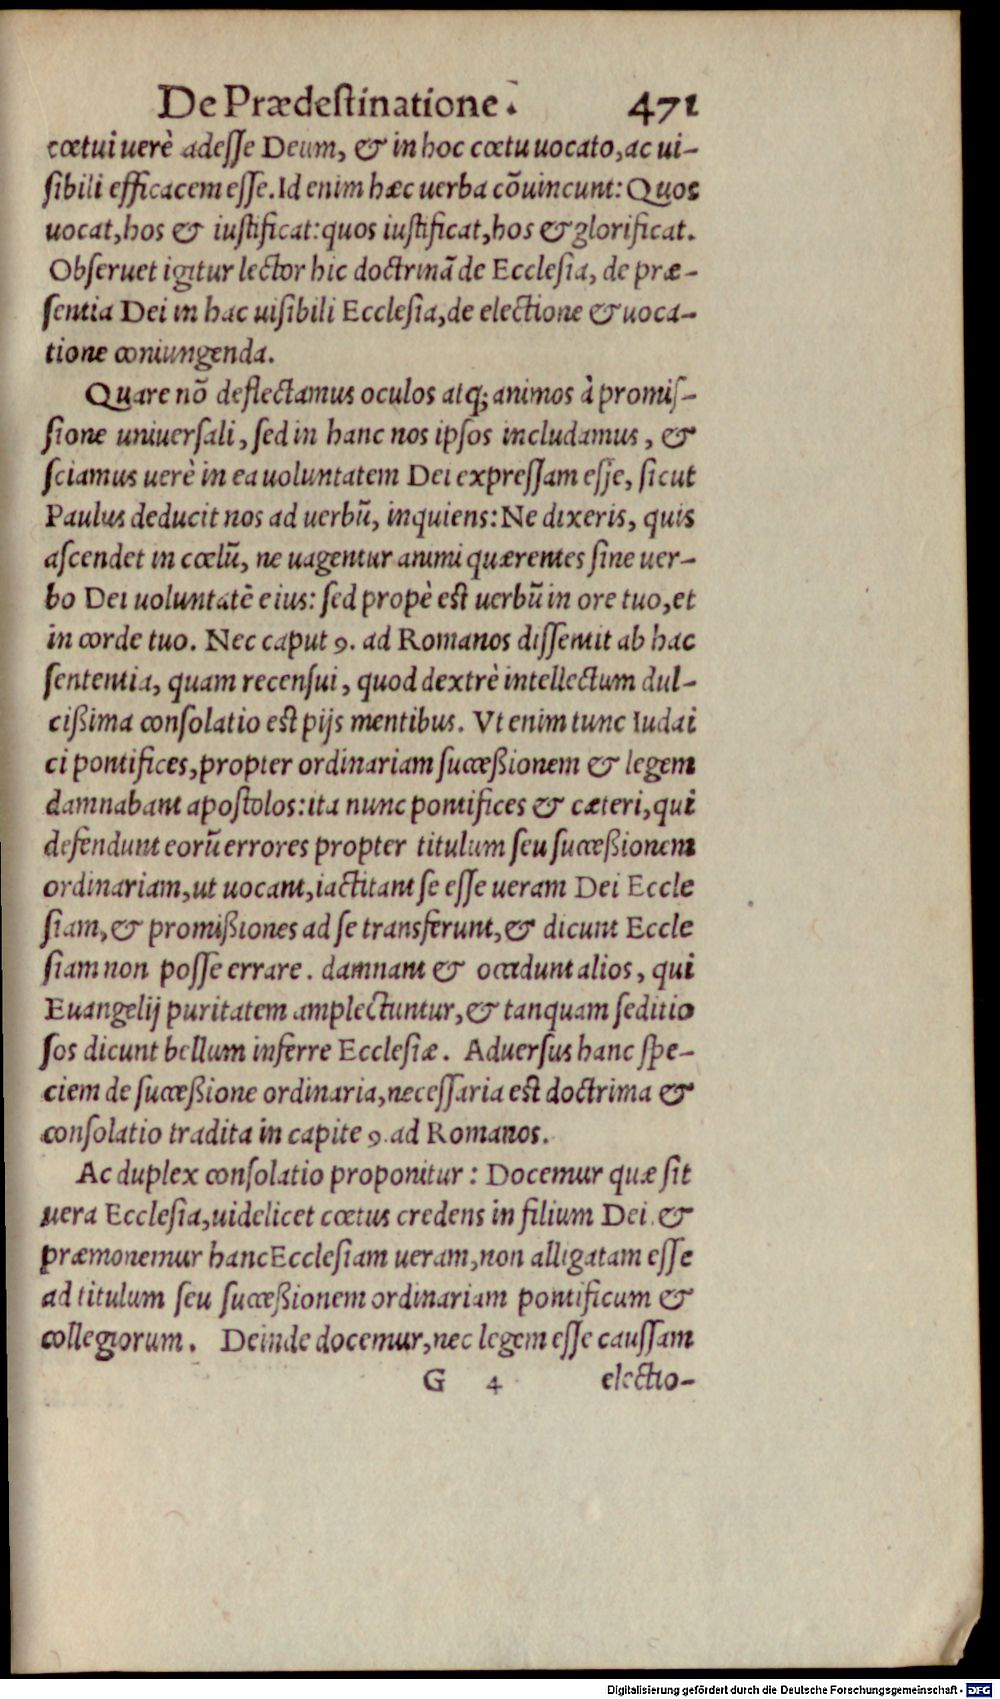 De Prædeſtinatione. 471
cœtui uerè adeſſe Deum, & in hoc cœtu uocato, ac ui-
ſibili efficacem eſſe. Id enim hæc uerba cōuincunt: Quos
uocat, hos & iuſtificat: quos iuſtificat, hos & glorificat.
Obſeruet igitur lector hic doctrinā de Eccleſia, de præ-
ſentia Dei in hac uiſibili Eccleſia, de electione & uoca-
tione coniungenda.
Quare nō deflectamus oculos atq; animos à promiſ-
ſione uniuerſali, ſed in hanc nos ipſos includamus, &
ſciamus uerè in ea uoluntatem Dei expreſſam eſſe, ſicut
Paulus deducit nos ad uerbū, inquiens: Ne dixeris, quis
aſcendet in cœlū, ne uagentur animi quærentes ſine uer-
bo Dei uoluntatē eius: ſed propè eſt uerbū in ore tuo, et
in corde tuo. Nec caput 9. ad Romanos diſſentit ab hac
ſententia, quam recenſui, quod dextrè intellectum dul-
cißima conſolatio eſt pijs mentibus. Vt enim tunc Iudai
ci pontifices, propter ordinariam ſucceßionem & legem
damnabant apoſtolos: ita nunc pontifices & cæteri, qui
defendunt eorū errores propter titulum ſeu ſucceßionem
ordinariam, ut uocant, iactitant ſe eſſe ueram Dei Eccle
ſiam, & promißiones ad ſe transferunt, & dicunt Eccle
ſiam non poſſe errare. damnant & occidunt alios, qui
Euangelij puritatem amplectuntur, & tanquam ſeditio
ſos dicunt bellum inferre Eccleſiæ. Aduerſus hanc ſpe-
ciem de ſucceßione ordinaria, neceſſaria eſt doctrina &
conſolatio tradita in capite 9. ad Romanos.
Ac duplex conſolatio proponitur: Docemur quæ ſit
uera Eccleſia, uidelicet cœtus credens in filium Dei. &
præmonemur hanc Eccleſiam ueram, non alligatam eſſe
ad titulum ſeu ſucceßionem ordinariam pontificum &
collegiorum. Deinde docemur, nec legem eſſe cauſſam
G 4 electio-
Digitalisierung gefördert durch die Deutsche Forschungsgemeinschaft - DFG